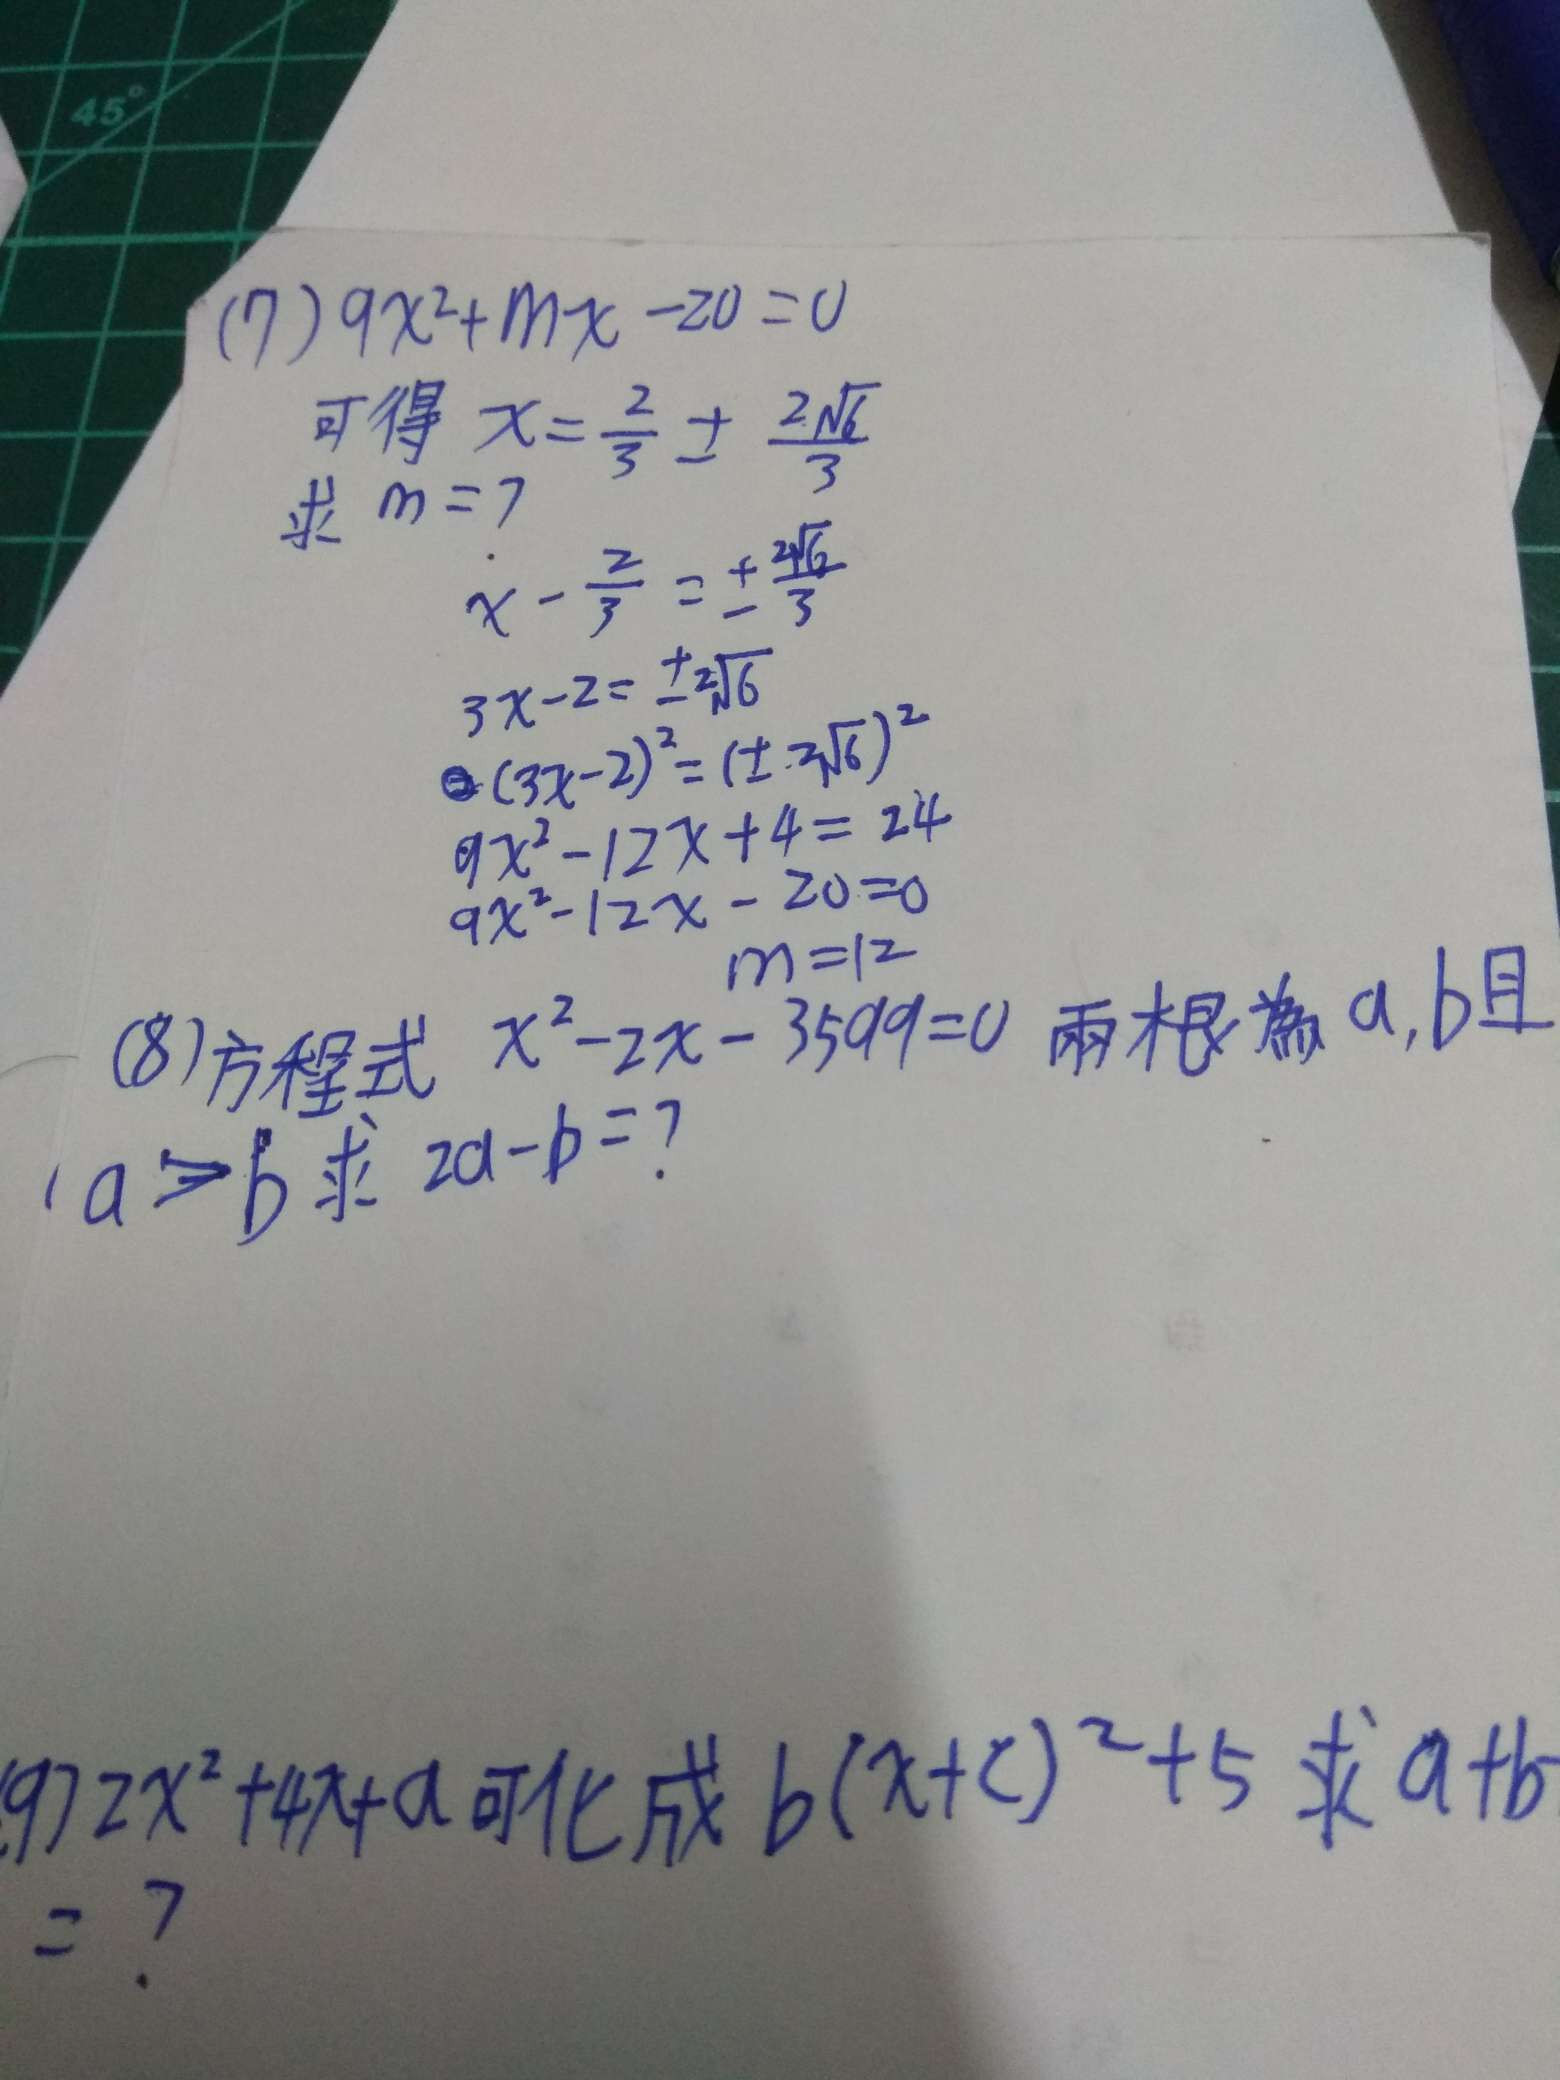 45°
(7) 9x²+mx-20=0
可得 x=2/3 ± 2√6/3
求 m=?
x-2/3 = ±2√6/3
3x-2=±2√6
(3x-2)²=(±2√6)²
9x²-12x+4=24
9x²-12x-20=0
m=12
(8)方程式 x²-2x-3599=0 兩根為 a,b且
a>b 求 2a-b=?
(9) 2x²+4x+a可化成 b(x+c)²+5 求 a+b
=?